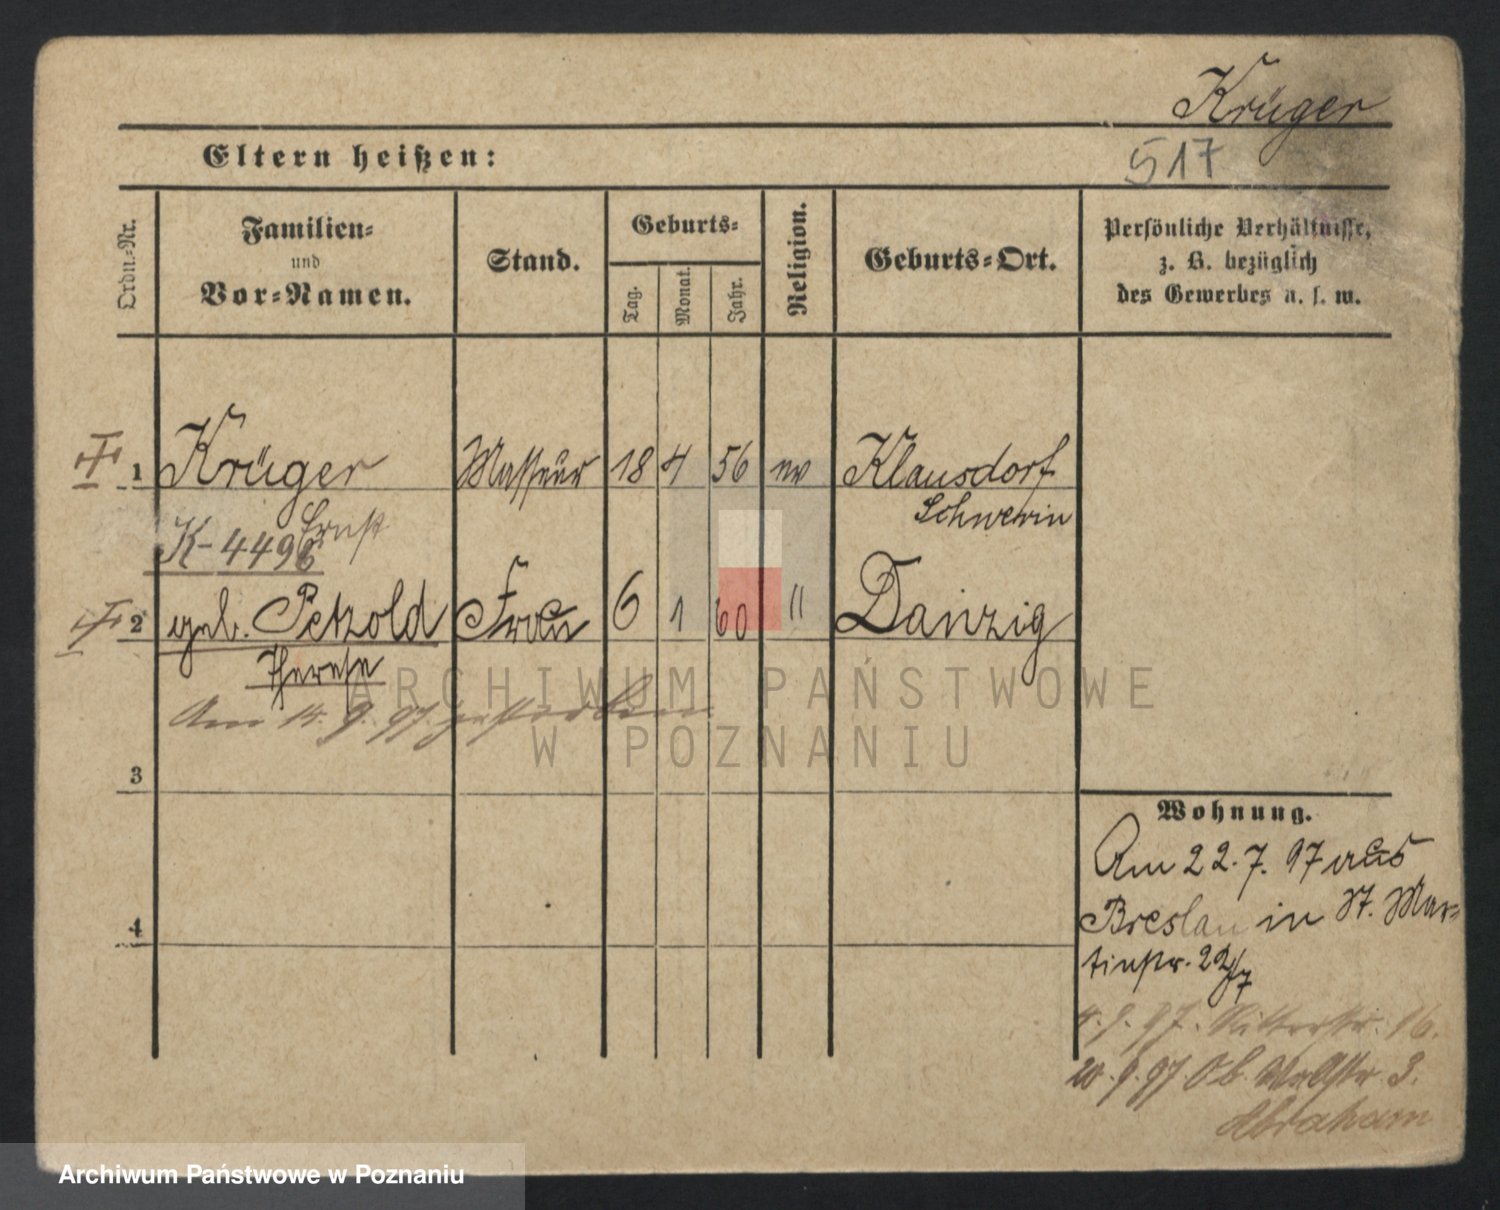 Krüger
517
Eltern heißen:
Ordn.-Nr.
Familien-
und
Vor-Namen.
Stand.
Geburts-
Tag.
Monat.
Jahr.
Religion.
Geburts-Ort.
Persönliche Verhältnisse,
z. B. bezüglich
des Gewerbes u. s. w.
1 Krüger Masseur 18 4 56 ev Klausdorf
Ernst Schwerin
K-4496
2 geb. Petzold Frau 6 1 60 " Danzig
Therese
Am 14. 9. 97. gestorben
3
4
Wohnung.
Am 22. 7. 97 aus
Breslau in St. Mar-
tinstr. 22/7
4. 9. 97. Ritterstr. 16.
20. 9. 97. Ob. 3.
Abraham
ARCHIWUM PAŃSTWOWE
W POZNANIU
Archiwum Państwowe w Poznaniu